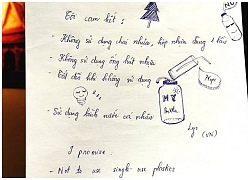 Tôi cam kết :
- Không sử dụng chai nhựa, hộp nhựa dùng 1 lần
- Không sử dụng ống hút nhựa
- Tắt đèn khi không sử dụng
- Sử dụng bình nước cá nhân
Lys (VN)
I promise :
- Not to use single-use plastics